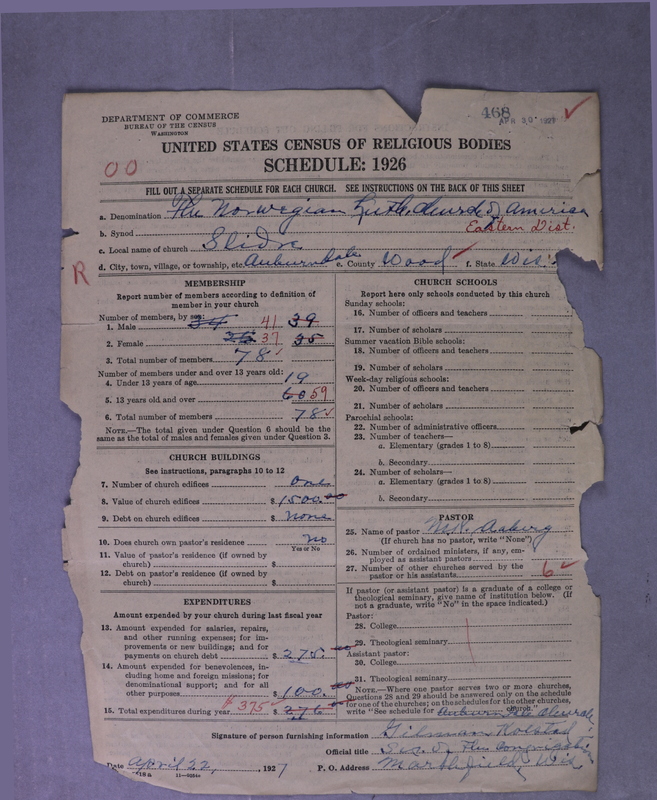 DEPARTMENT OF COMMERCE
BUREAU OF THE CENSUS
WASHINGTON
468
APR 30 1927
UNITED STATES CENSUS OF RELIGIOUS BODIES
SCHEDULE: 1926
00
FILL OUT A SEPARATE SCHEDULE FOR EACH CHURCH. SEE INSTRUCTIONS ON THE BACK OF THIS SHEET
a. Denomination The Norwegian Luth. Church of America
b. Synod Eastern Dist.
c. Local name of church Slidre
d. City, town, village, or township, etc. Auburndale e. County Wood f. State Wis.
R
MEMBERSHIP
Report number of members according to definition of
member in your church
Number of members, by sex:
1. Male 34 41 39
2. Female 36 37 35
3. Total number of members 78
Number of members under and over 13 years old:
4. Under 13 years of age 19
5. 13 years old and over 60 59
6. Total number of members 78
NOTE.—The total given under Question 6 should be the
same as the total of males and females given under Question 3.
CHURCH BUILDINGS
See instructions, paragraphs 10 to 12
7. Number of church edifices one
8. Value of church edifices $ 1500.00
9. Debt on church edifices $ none
10. Does church own pastor's residence no
Yes or No
11. Value of pastor's residence (if owned by
church) $
12. Debt on pastor's residence (if owned by
church) $
EXPENDITURES
Amount expended by your church during last fiscal year
13. Amount expended for salaries, repairs,
and other running expenses; for im-
provements or new buildings; and for
payments on church debt $ 275.00
14. Amount expended for benevolences, in-
cluding home and foreign missions; for
denominational support; and for all
other purposes $ 100.00
15. Total expenditures during year $375 $ 276.00
CHURCH SCHOOLS
Report here only schools conducted by this church
Sunday schools:
16. Number of officers and teachers
17. Number of scholars
Summer vacation Bible schools:
18. Number of officers and teachers
19. Number of scholars
Week-day religious schools:
20. Number of officers and teachers
21. Number of scholars
Parochial schools:
22. Number of administrative officers
23. Number of teachers—
a. Elementary (grades 1 to 8)
b. Secondary
24. Number of scholars—
a. Elementary (grades 1 to 8)
b. Secondary
PASTOR
25. Name of pastor Aaberg
(If church has no pastor, write "None")
26. Number of ordained ministers, if any, em-
ployed as assistant pastors
27. Number of other churches served by the
pastor or his assistants 6
If pastor (or assistant pastor) is a graduate of a college or
theological seminary, give name of institution below. (If
not a graduate, write "No" in the space indicated.)
Pastor:
28. College
29. Theological seminary
Assistant pastor:
30. College
31. Theological seminary
NOTE.—Where one pastor serves two or more churches,
Questions 28 and 29 should be answered only on the schedule
for one of the churches; on the schedules for the other churches,
write "See schedule for Auburndale church church."
Signature of person furnishing information Gilman Rolstad
Official title Sec. of the Congregation
Date April 22, 1927 P. O. Address Marshfield, Wis
11—9054